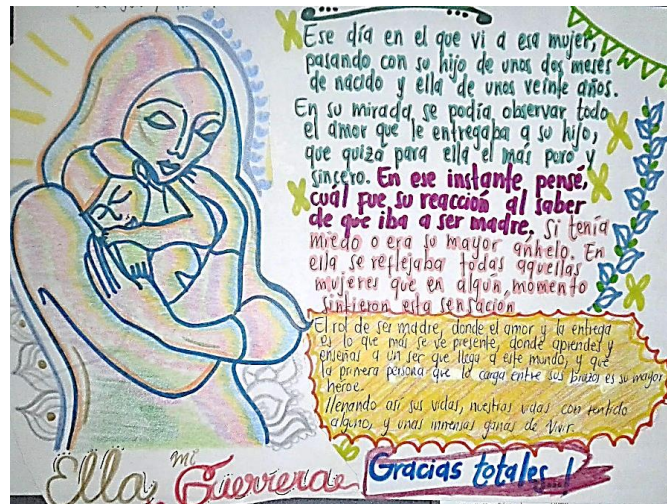 Ese día en el que vi a esa mujer,
pasando con su hijo de unos dos meses
de nacido y ella de unos veinte años.
En su mirada, se podía observar todo
el amor que le entregaba a su hijo,
que quizá para ella el más puro y
sincero. En ese instante pensé,
cuál fue su reacción al saber
de que iba a ser madre, si tenía
miedo o era su mayor anhelo. En
ella se reflejaba todas aquellas
mujeres que en algun momento
sintieron esta sensación
El rol de ser madre, donde el amor y la entrega
es lo que más se ve presente, donde aprendes y
enseñas a un ser que llega a este mundo, y que
la primera persona que lo carga entre sus brazos es su mayor
héroe.
llenando así sus vidas, nuestras vidas con sentido
alguno, y unas inmensas ganas de vivir.
Ella, mi Guerrera
Gracias totales...!